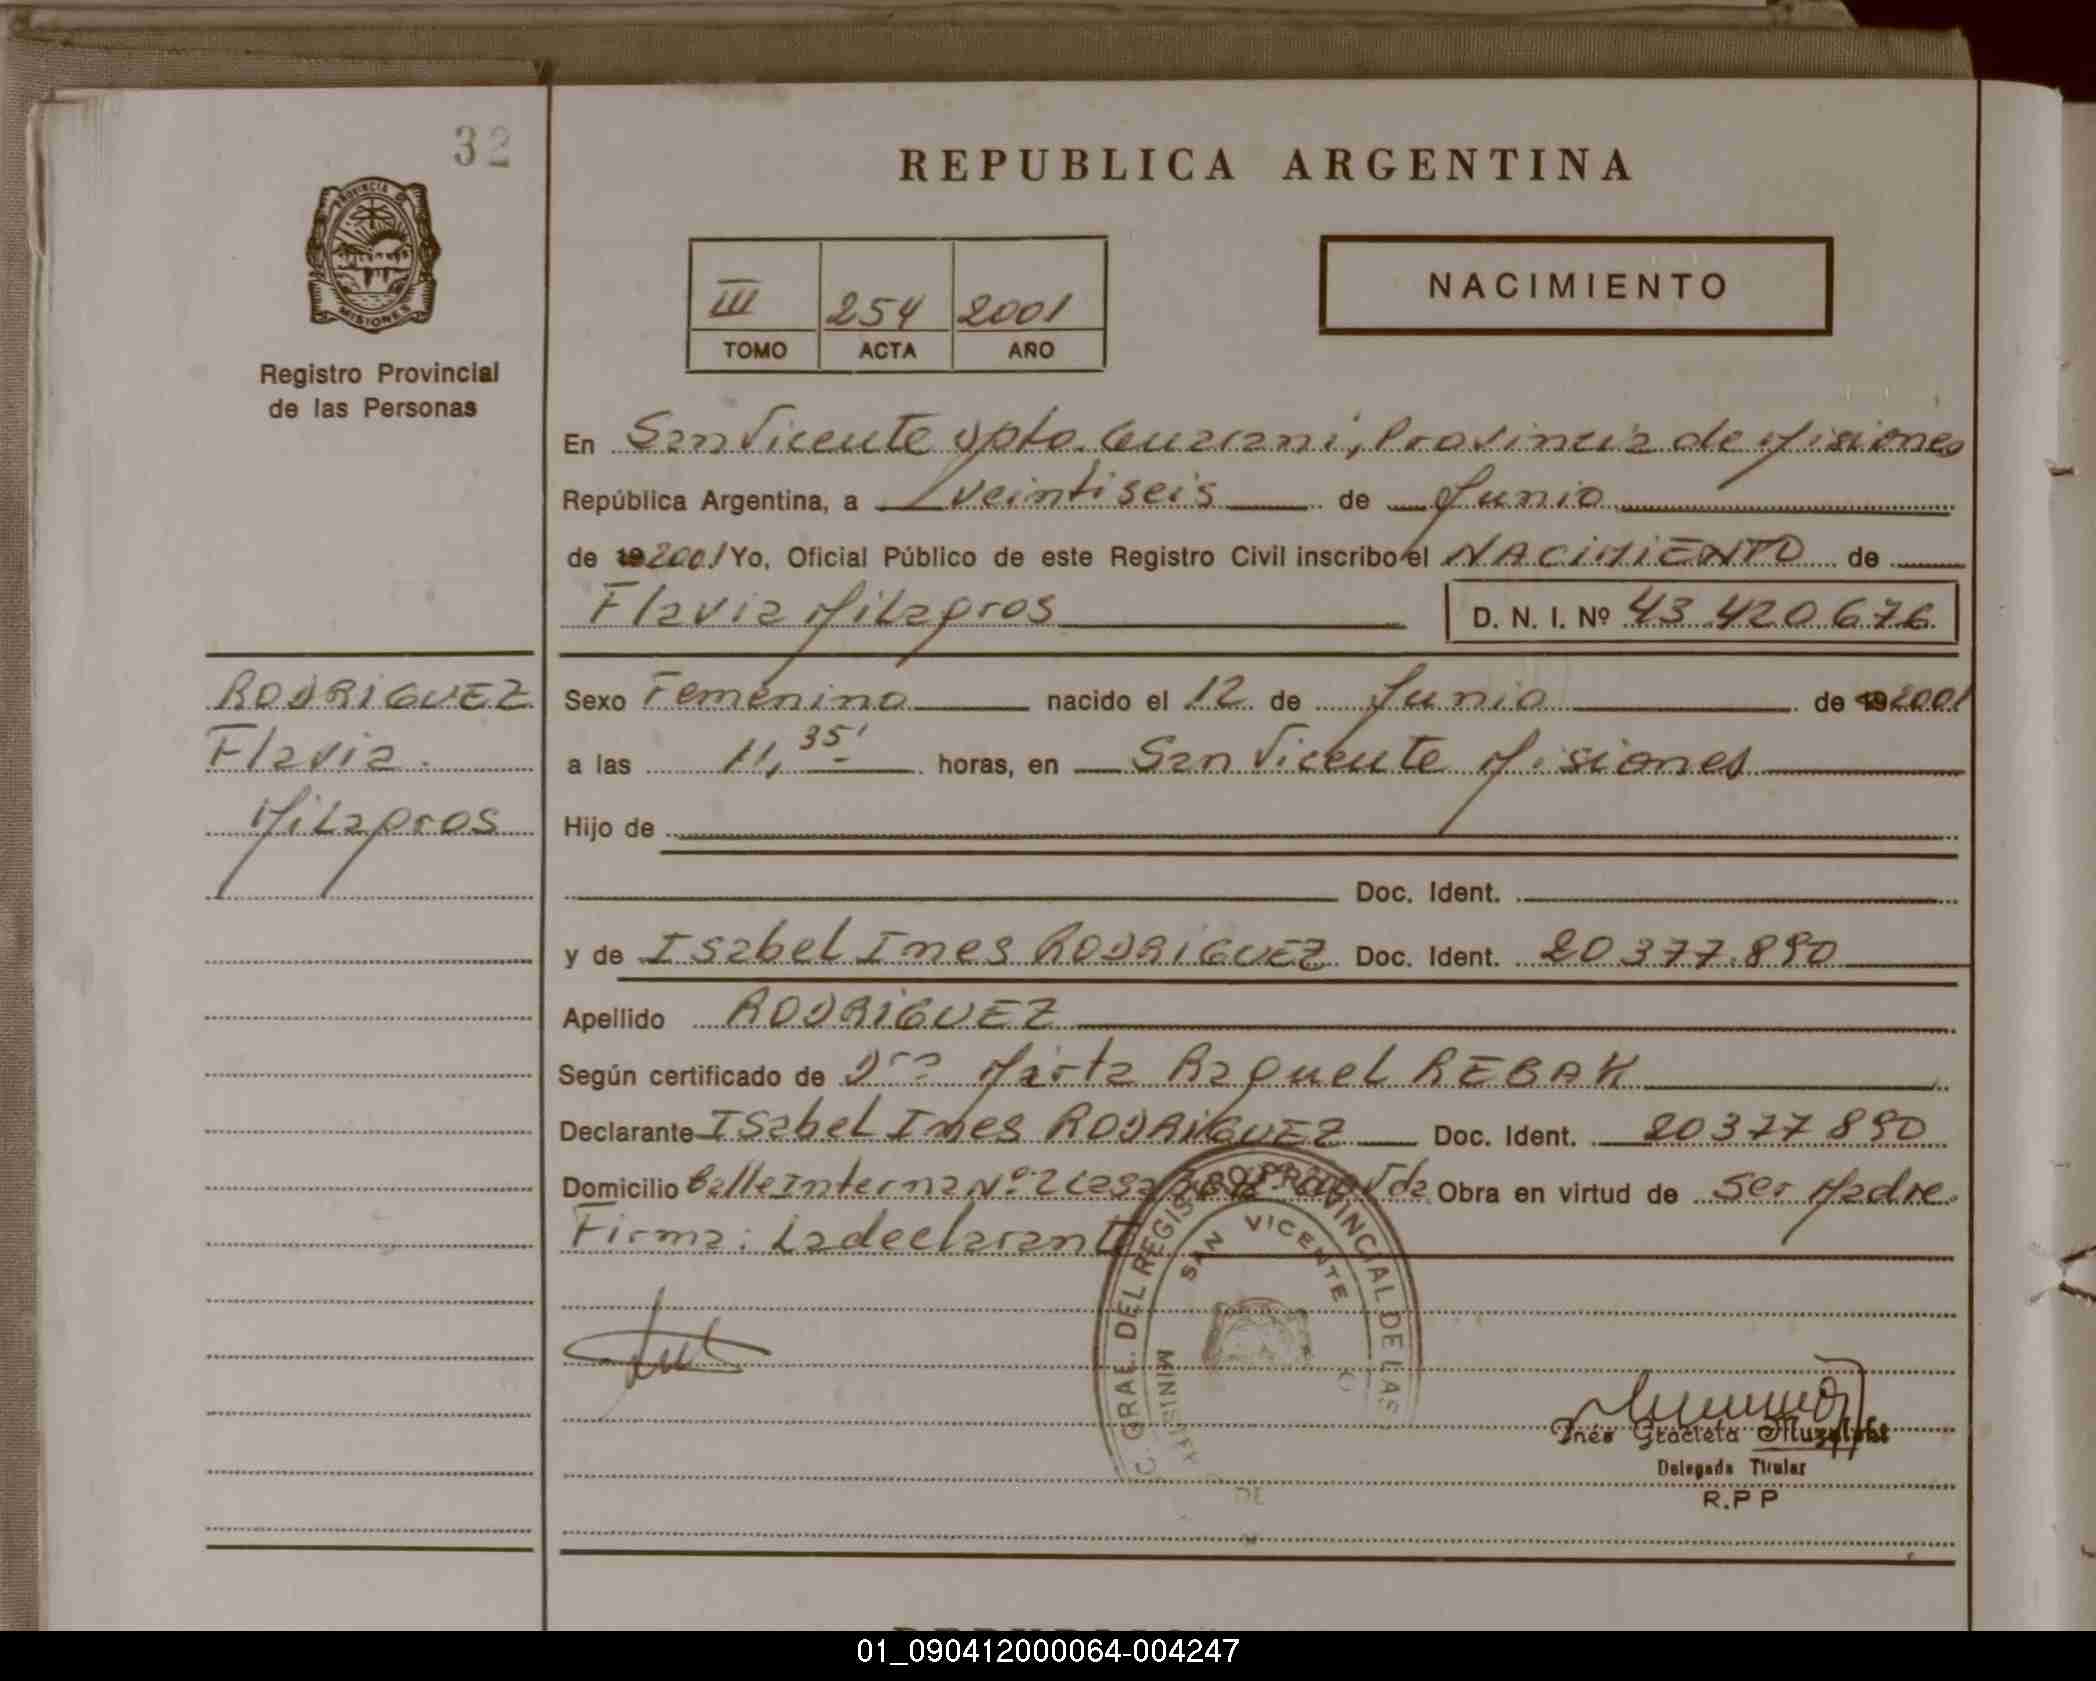 32
REPUBLICA ARGENTINA
PROVINCIA DE
MISIONES
Registro Provincial
de las Personas
III 254 2001
TOMO ACTA AÑO
NACIMIENTO
En San Vicente Dpto. Guarani, Provincia de Misiones
República Argentina, a veintiseis de Junio
de 19 2001 Yo, Oficial Público de este Registro Civil inscribo el NACIMIENTO de
Flavia Milagros D. N. I. Nº 43.420.676
RODRIGUEZ
Flavia
Milagros
Sexo Femenino nacido el 12 de Junio de 19 2001
a las 11,35' horas, en San Vicente Misiones
Hijo de
Doc. Ident.
y de Isabel Ines RODRIGUEZ Doc. Ident. 20.377.890
Apellido RODRIGUEZ
Según certificado de Dra Mirta Raquel REBAK
Declarante Isabel Ines RODRIGUEZ Doc. Ident. 20377890
Domicilio Calle Interna Nº 2 Casa Obra en virtud de Ser Madre.
Firma: La declarante
GRAL. DEL REGISTRO PROVINCIAL DE LAS
SAN VICENTE
Inés Graciela
Delegada Titular
R.P P
01_090412000064-004247